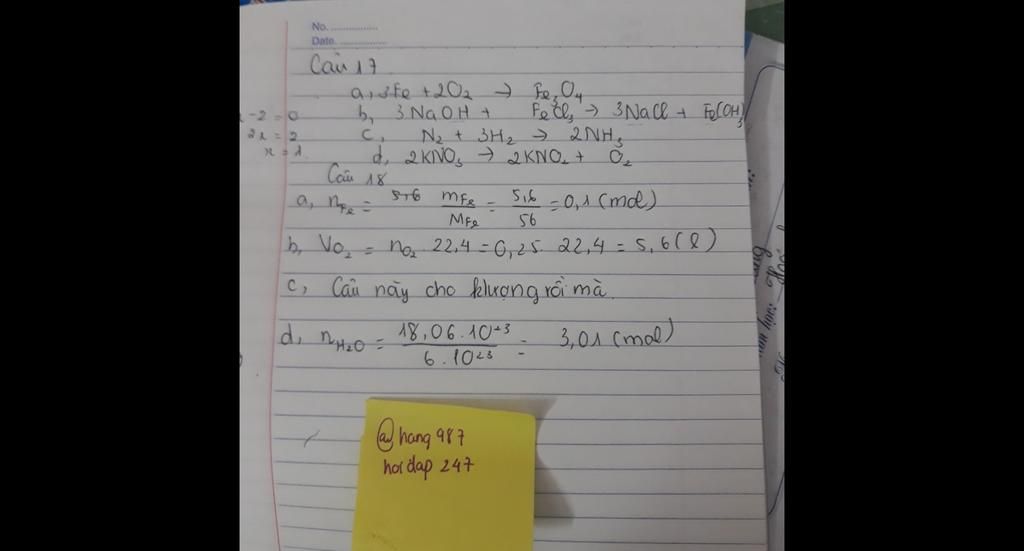 No. ................
Date. ................
Câu 17
a, 3Fe + 2O₂ → Fe₃O₄
x - 2 = 0
b, 3NaOH + FeCl₃ → 3NaCl + Fe(OH)₃
2x = 2
c, N₂ + 3H₂ → 2NH₃
x = 1
d, 2KNO₃ → 2KNO₂ + O₂
Câu 18
a, nFe = 5,6 mFe/MFe = 5,6/56 = 0,1 (mol)
b, VO₂ = nO₂ . 22,4 = 0,25 . 22,4 = 5,6 (l)
c, Câu này cho klượng rồi mà.
d, nH₂O = 18,06.10²³/6.10²³ = 3,01 (mol)
@hang987
hoidap 247